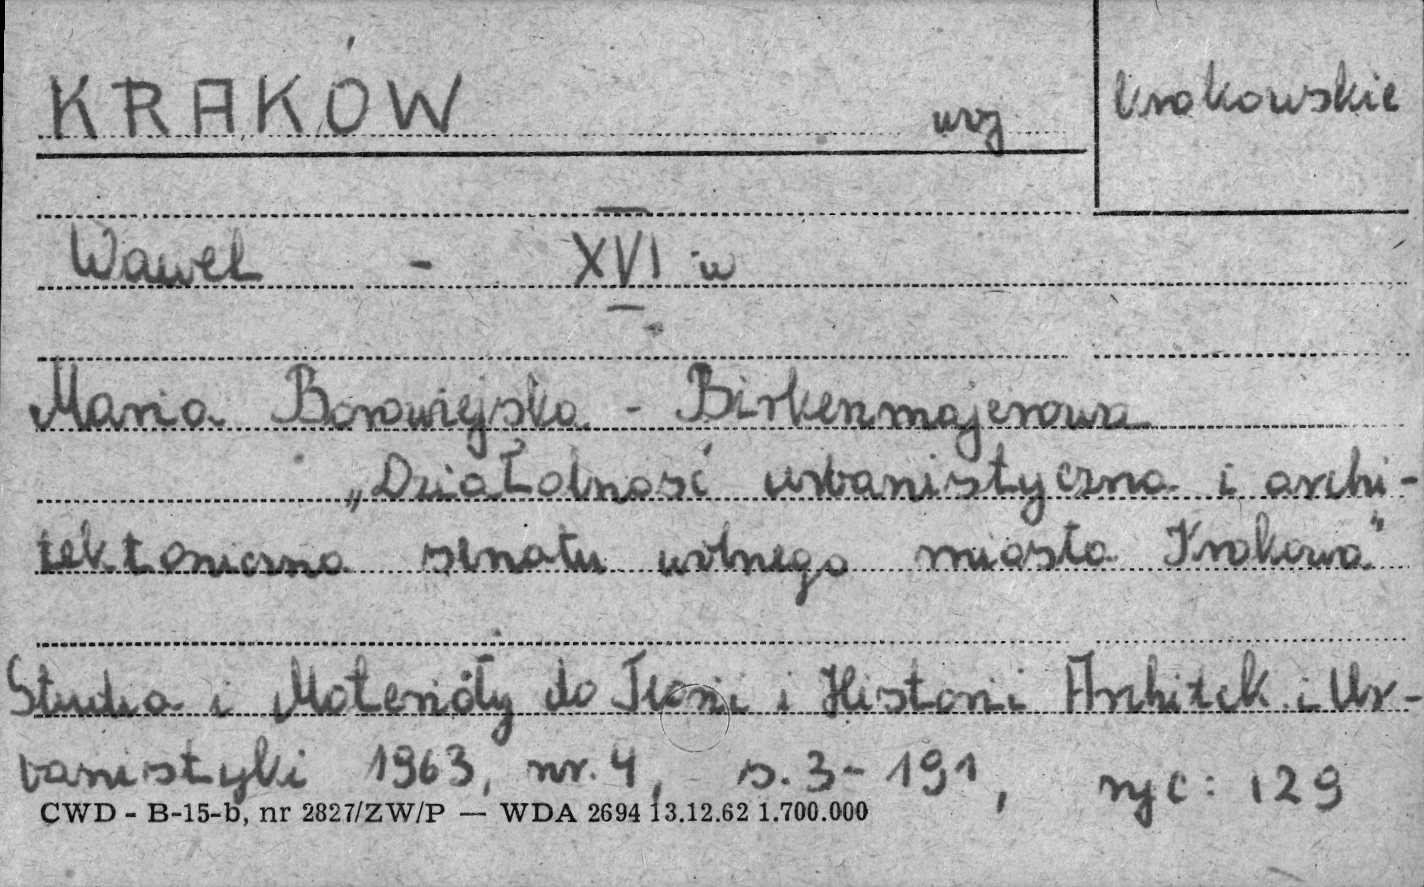 KRAKÓW woj krakowskie
Wawel - XVI w
Maria Borowiejska - Birkenmajerowa
„Działalność urbanistyczna i archi-
tektoniczna senatu wolnego miasta Krakowa"
Studia i Materiały do Teorii i Historii Architek. i Ur-
banistyki 1963, nr. 4, s. 3-191, ryc: 129
CWD - B-15-b, nr 2827/ZW/P — WDA 2694 13.12.62 1.700.000